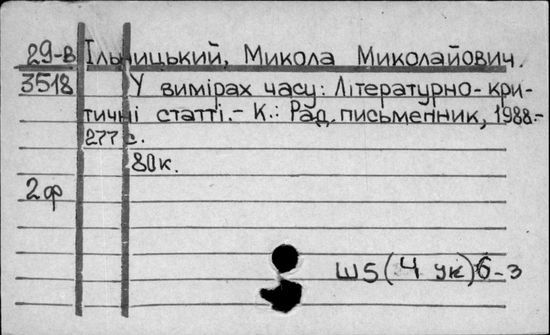 29-В Ільницький, Микола Миколайович.
3518 У вимірах часу: Літературно-кри-
тичні статті.- К.: Рад. письменник, 1988.-
277 с.
80к.
2 ф
Ш5(4 ук)6-3